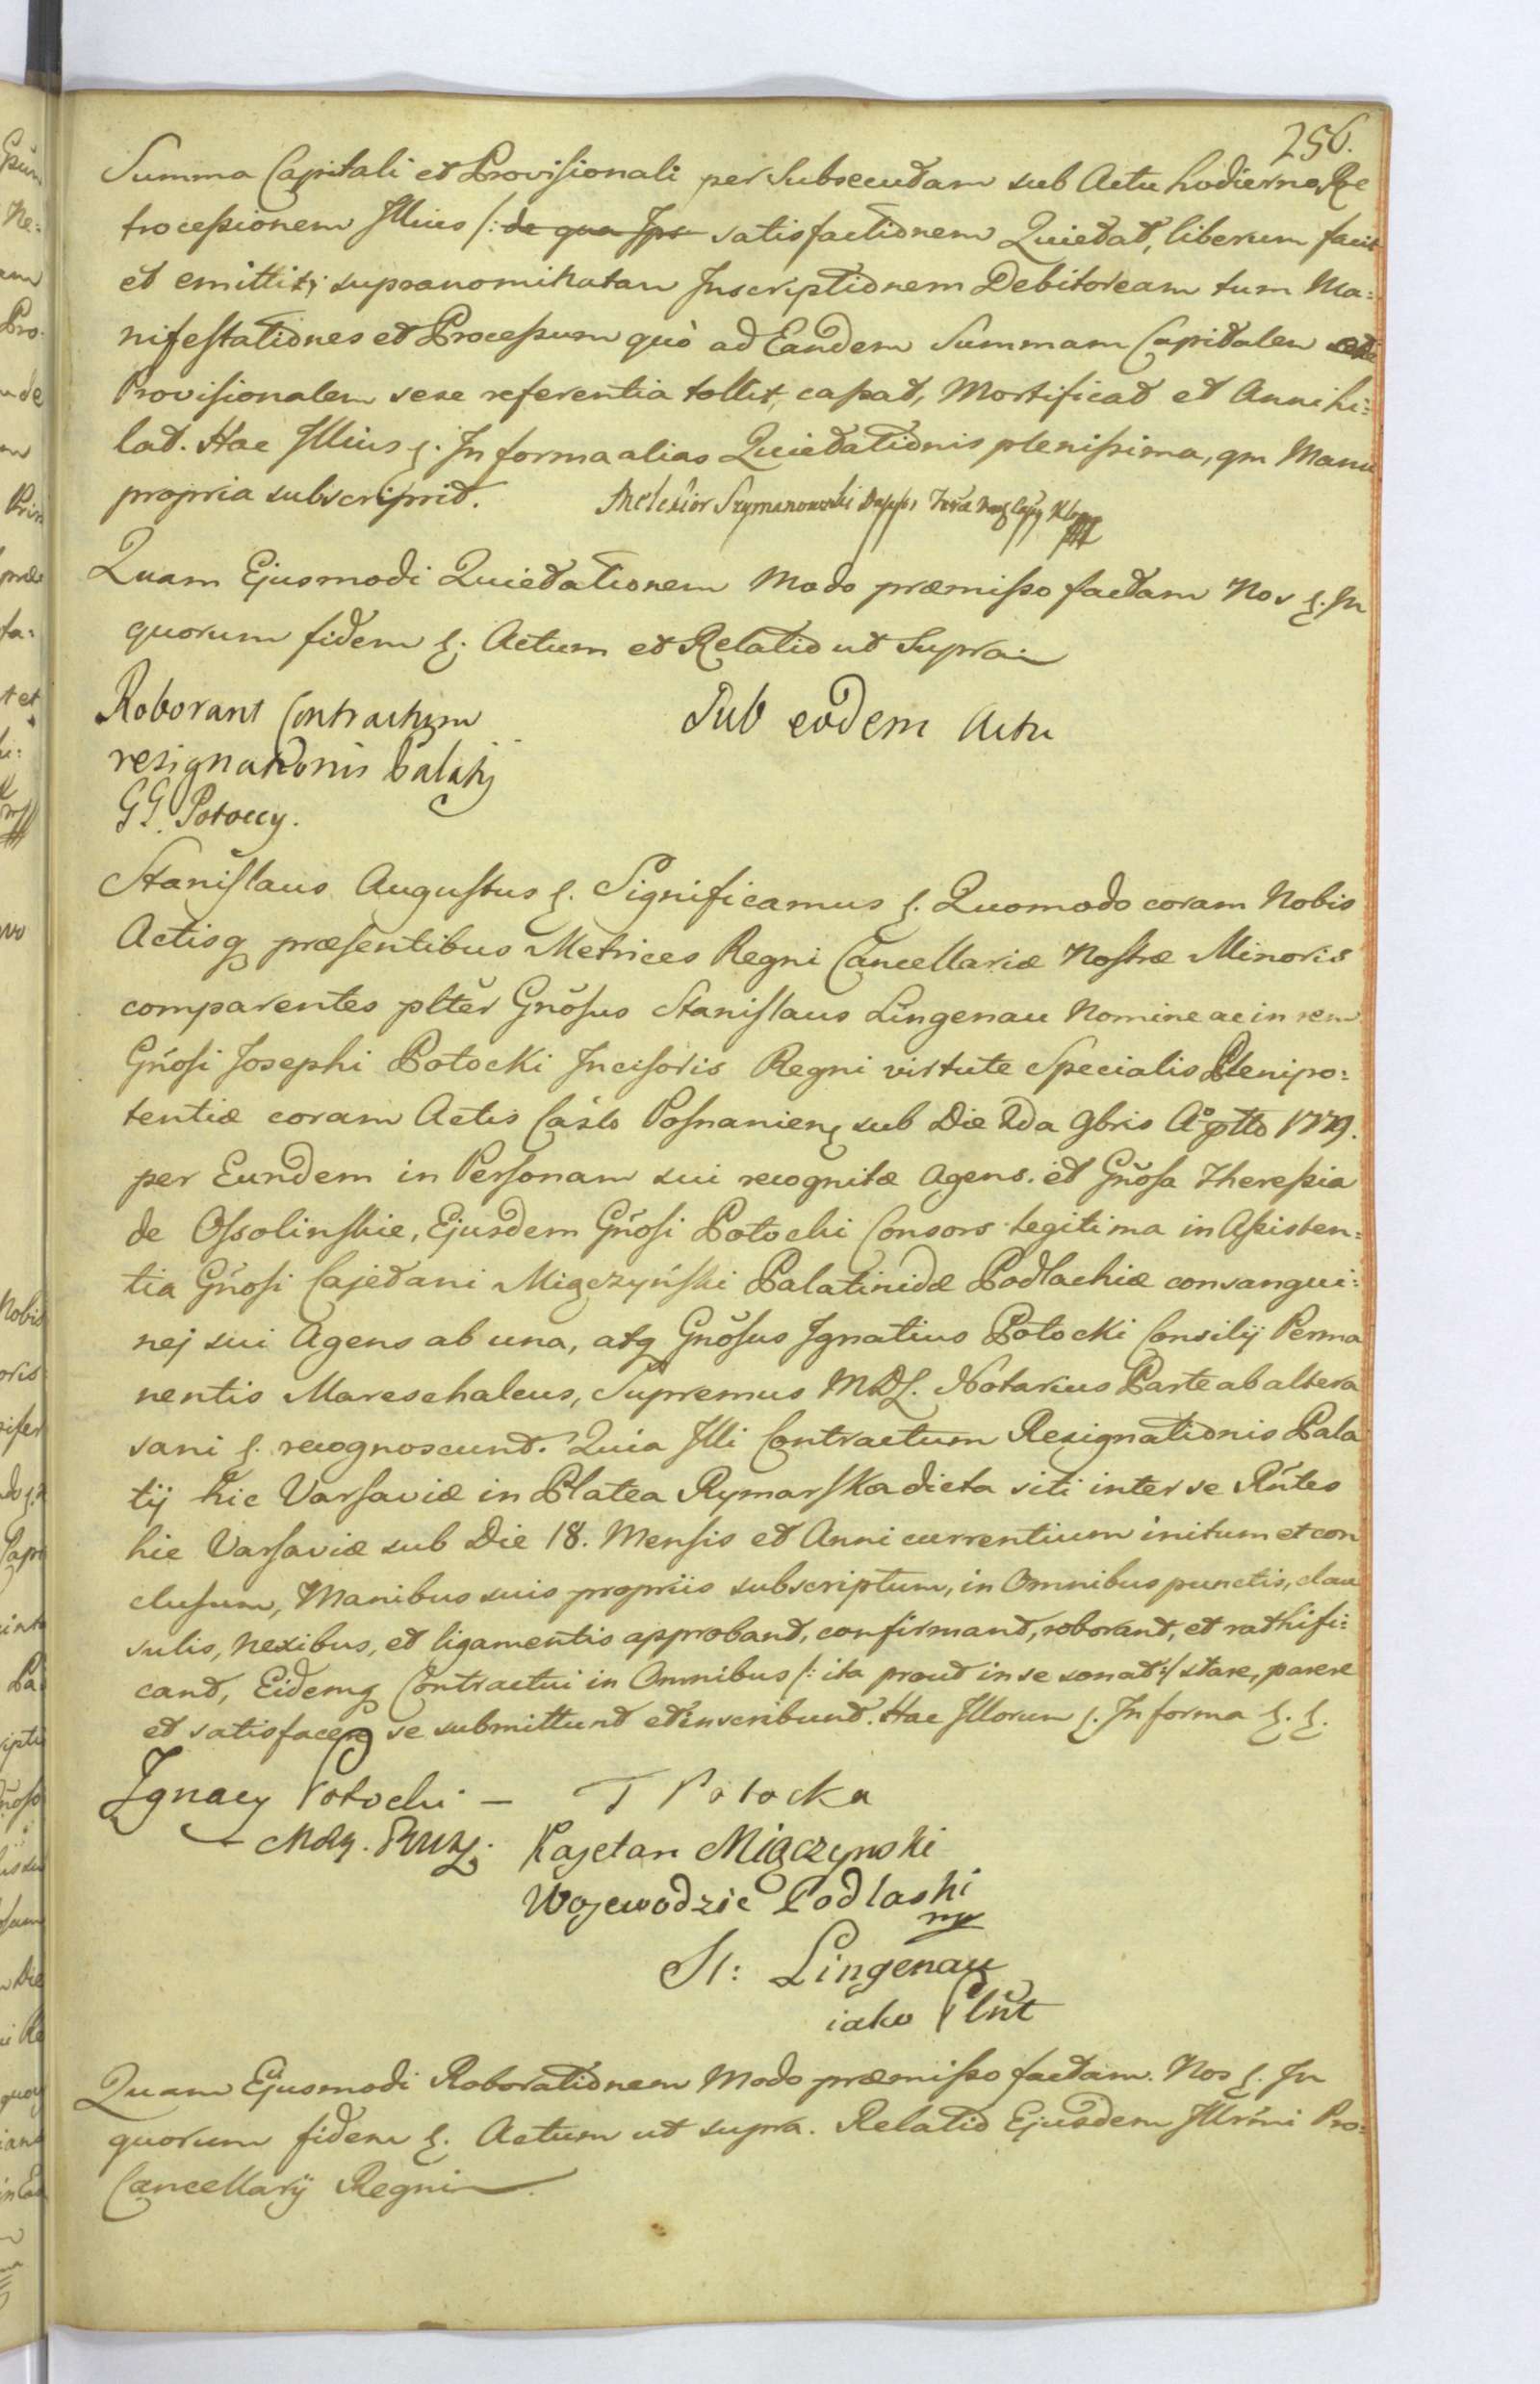 256.
Summa Capitali et Provisionali per subsecutam sub Actu hodierno Re
trocessionem Illius /: de qua Ips satisfactionem Quietat, liberum facit
et emittit; supranominatam Inscriptionem Debitoream tum Ma:
nifestationes et Processum quò ad Eandem Summam Capitalem
Provisionalem sese referentia tollit, cassat, Mortificat et Annihi:
lat. Hac Illius &. In forma alias Quietationis plenissima, qm Manu
propria subscripsit. Melchior Szymanowski
Quam Ejusmodi Quietationem Modo præmisso factam Nos &. In
quorum fidem &. Actum et Relatio ut Supra.
Roborant Contractum
resignationis Palatij
GG. Potoccy.
Sub eodem Actu
Stanislaus Augustus &. Significamus &. Quomodo coram Nobis
Actisq præsentibus Metrices Regni Cancellariæ Nostræ Minoris
comparentes plter Gnosus Stanislaus Lingenau Nomine ac in rem
Gnosi Josephi Potocki Incisoris Regni virtute Specialis Plenipo:
tentiæ coram Actis Castr Posnaniens sub Die 2da 9bris Ao ptto 1779.
per Eundem in Personam sui recognitæ Agens. et Gnosa Theressia
de Ossolinskie, Ejusdem Gnosi Potocki Consors legitima in Assisten:
tia Gnosi Cajetani Miączyński Palatinidæ Podlachiæ consangui:
nej sui Agens ab una, atq Gnosus Ignatius Potocki Consilij Perma
nentis Mareschalcus, Supremus MDL. Notarius Parte ab altera
sani &. recognoscunt. Quia Illi Contractum Resignationis Pala
tij hic Varsaviæ in Platea Rymarska dicta siti inter se Rntes
hic Varsaviæ sub Die 18. Mensis et Anni currentium initum et con
clusum, Manibus suis propriis subscriptum, in Omnibus punctis, clau
sulis, nexibus, et ligamentis approbant, confirmant, roborant, et rathifi:
cant, Eidemq Contractui in Omnibus /: ita prout in se sonat :/ stare, parere
et satisfacere se submittunt et inscribunt. Hac Illorum &. In forma &. &.
Ignacy Potocki – T Potocka
Kajetan Miączynski
Wojewodzic Podlaski
mp
St: Lingenau
iako Plnt
Quam Ejusmodi Roborationem Modo præmisso factam. Nos &. In
quorum fidem &. Actum ut supra. Relatio Ejusdem Illrmi Pro:
Cancellarij Regni